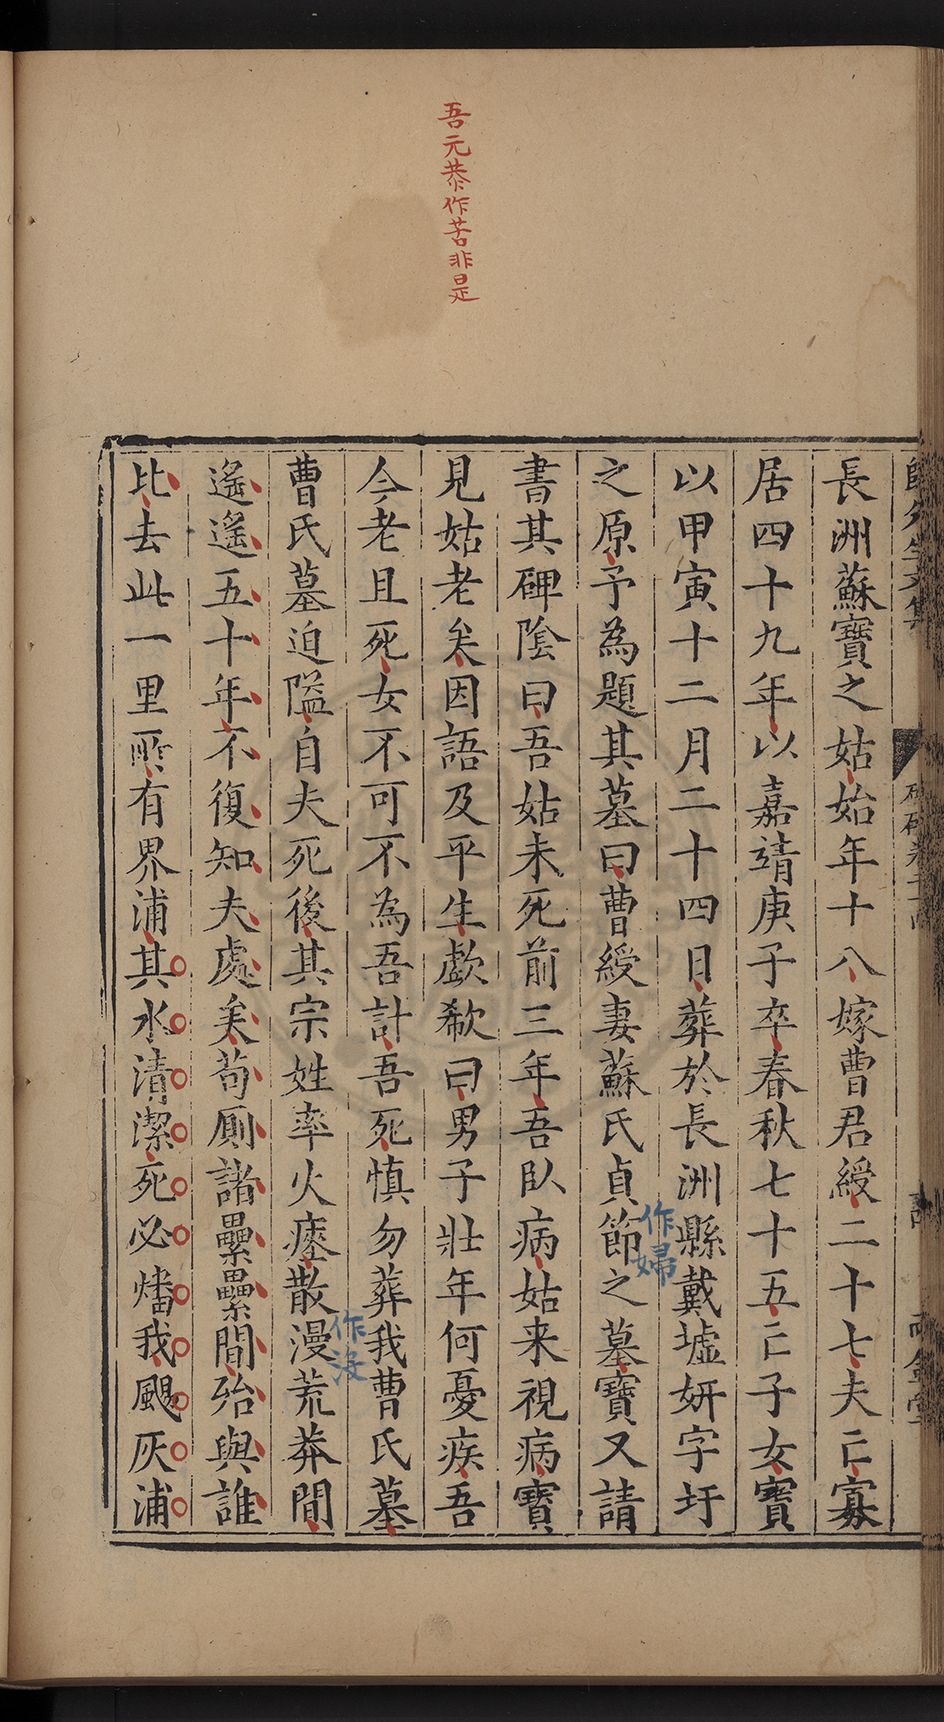 吾元恭作苦非是
長洲蘇寶之姑始年十八嫁曹君綬二十七夫亡寡
居四十九年以嘉靖庚子卒春秋七十五亡子女寶
以甲寅十二月二十四日葬於長洲縣戴墟妍字圩
之原予為題其墓曰曹綬妻蘇氏貞節之墓寶又請
作婦
書其碑陰曰吾姑未死前三年吾臥病姑来視病寶
見姑老矣因語及平生歔欷曰男子壯年何憂疾吾
今老且死女不可不為吾計吾死慎勿葬我曹氏墓
曹氏墓迫隘自夫死後其宗姓率火瘞散漫荒莽間
作没
遙遙五十年不復知夫處矣苟厠諸纍纍間殆與誰
比去此一里所有界浦其水清潔死必燔我颺灰浦